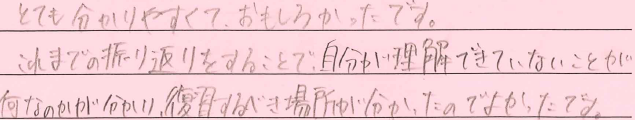 とても分かりやすくて、おもしろかったです。
これまでの振り返りをすることで、自分が理解できていないことが
何なのかが分かり、復習するべき場所が分かったのでよかったです。